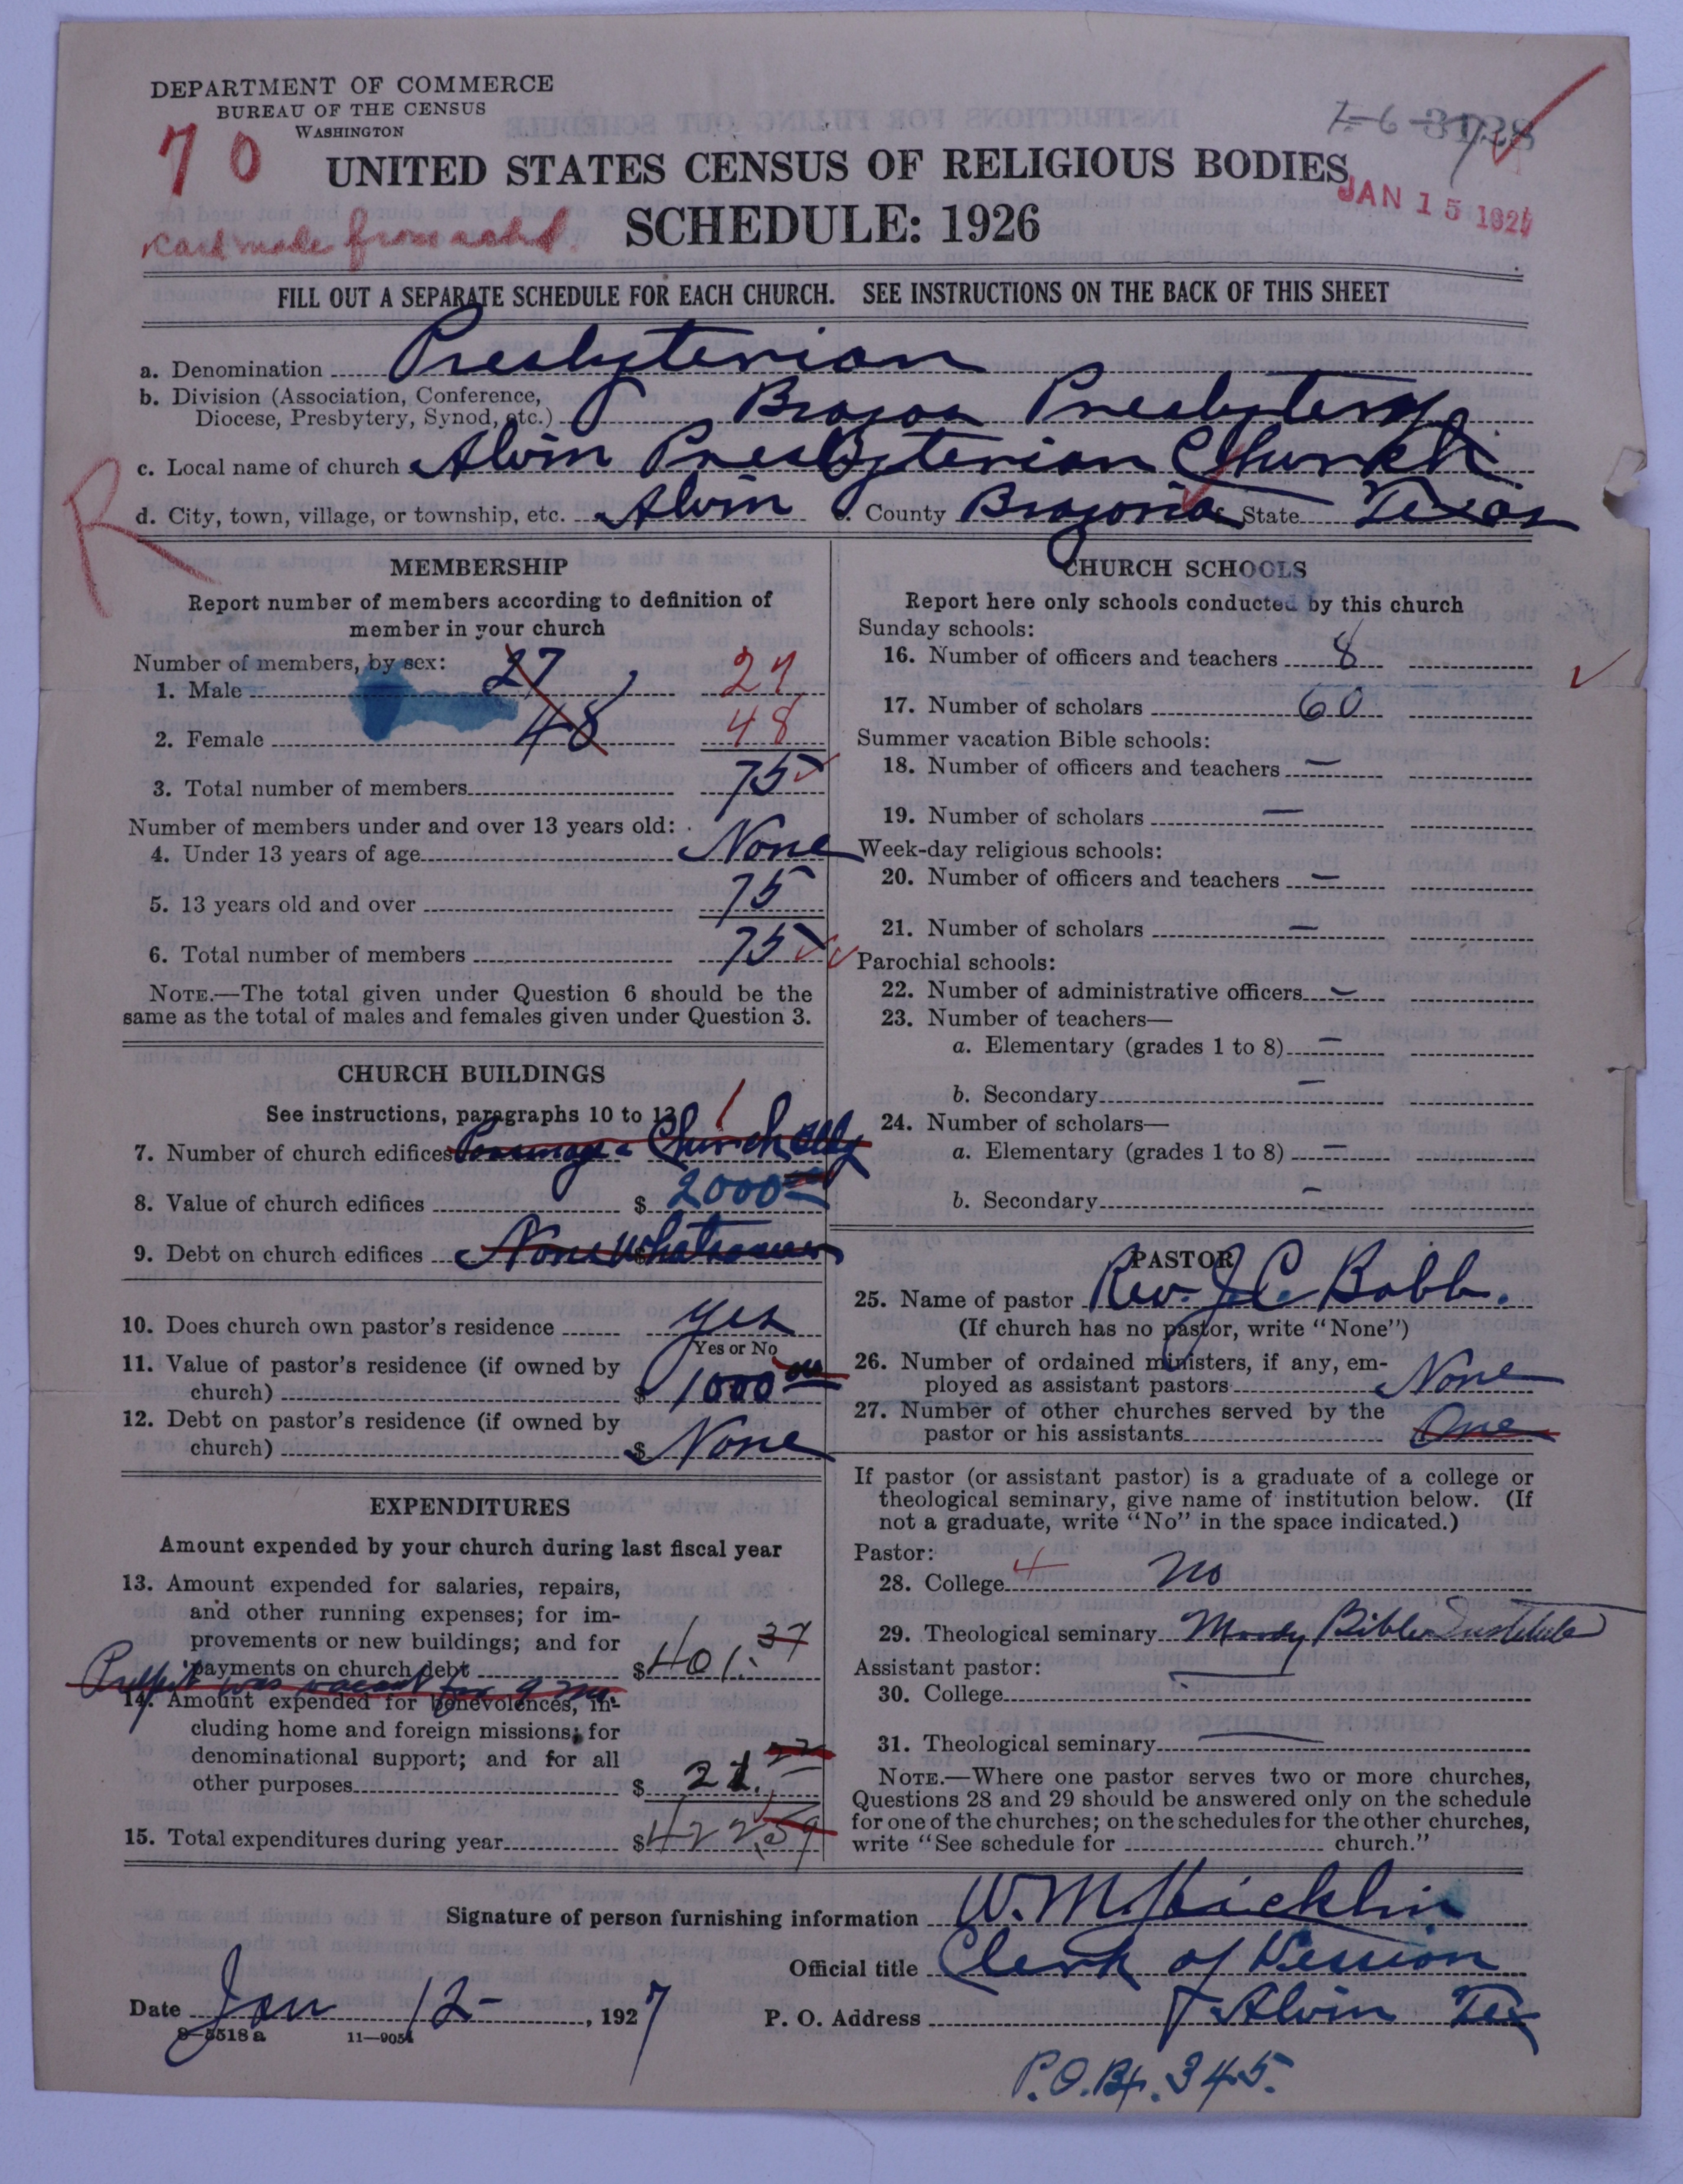 DEPARTMENT OF COMMERCE
BUREAU OF THE CENSUS
WASHINGTON
70
JAN 15 192
UNITED STATES CENSUS OF RELIGIOUS BODIES
SCHEDULE: 1926
Card made from
FILL OUT A SEPARATE SCHEDULE FOR EACH CHURCH. SEE INSTRUCTIONS ON THE BACK OF THIS SHEET
a. Denomination Presbyterian
b. Division (Association, Conference,
Diocese, Presbytery, Synod, etc.) Brazos Presbytery
c. Local name of church Alvin Presbyterian Church
d. City, town, village, or township, etc. Alvin e. County Brazoria f. State Texas
R
MEMBERSHIP
Report number of members according to definition of
member in your church
Number of members, by sex:
1. Male 27 27
2. Female 48 48
3. Total number of members 75
Number of members under and over 13 years old:
4. Under 13 years of age None
5. 13 years old and over 75
6. Total number of members 75
NOTE.—The total given under Question 6 should be the
same as the total of males and females given under Question 3.
CHURCH BUILDINGS
See instructions, paragraphs 10 to 13
1
7. Number of church edifices Parsonage & Church Bldg
8. Value of church edifices $ 2000
9. Debt on church edifices None whatsoever
10. Does church own pastor's residence Yes
Yes or No
11. Value of pastor's residence (if owned by
church) $ 1000 00
12. Debt on pastor's residence (if owned by
church) $ None
EXPENDITURES
Amount expended by your church during last fiscal year
13. Amount expended for salaries, repairs,
and other running expenses; for im-
provements or new buildings; and for
payments on church debt $ 401.37
Pulpit was vacant for 9 mo.
14. Amount expended for benevolences, in-
cluding home and foreign missions; for
denominational support; and for all
other purposes $ 21.22
15. Total expenditures during year $ 422.59
CHURCH SCHOOLS
Report here only schools conducted by this church
Sunday schools:
16. Number of officers and teachers 8
17. Number of scholars 60
Summer vacation Bible schools:
18. Number of officers and teachers —
19. Number of scholars —
Week-day religious schools:
20. Number of officers and teachers —
21. Number of scholars —
Parochial schools:
22. Number of administrative officers —
23. Number of teachers—
a. Elementary (grades 1 to 8) —
b. Secondary —
24. Number of scholars—
a. Elementary (grades 1 to 8) —
b. Secondary —
PASTOR
25. Name of pastor Rev. J C Bobb.
(If church has no pastor, write "None")
26. Number of ordained ministers, if any, em-
ployed as assistant pastors None
27. Number of other churches served by the
pastor or his assistants One
If pastor (or assistant pastor) is a graduate of a college or
theological seminary, give name of institution below. (If
not a graduate, write "No" in the space indicated.)
Pastor:
28. College 4 no
29. Theological seminary Moody Bible Institute
Assistant pastor:
30. College —
31. Theological seminary —
NOTE.—Where one pastor serves two or more churches,
Questions 28 and 29 should be answered only on the schedule
for one of the churches; on the schedules for the other churches,
write "See schedule for church."
Signature of person furnishing information W. M. Hicklin
Official title Clerk of Session
Date Jan 12- , 1927
P. O. Address Alvin Tex
8—5518 a 11—9054
P.O. Bx. 345.